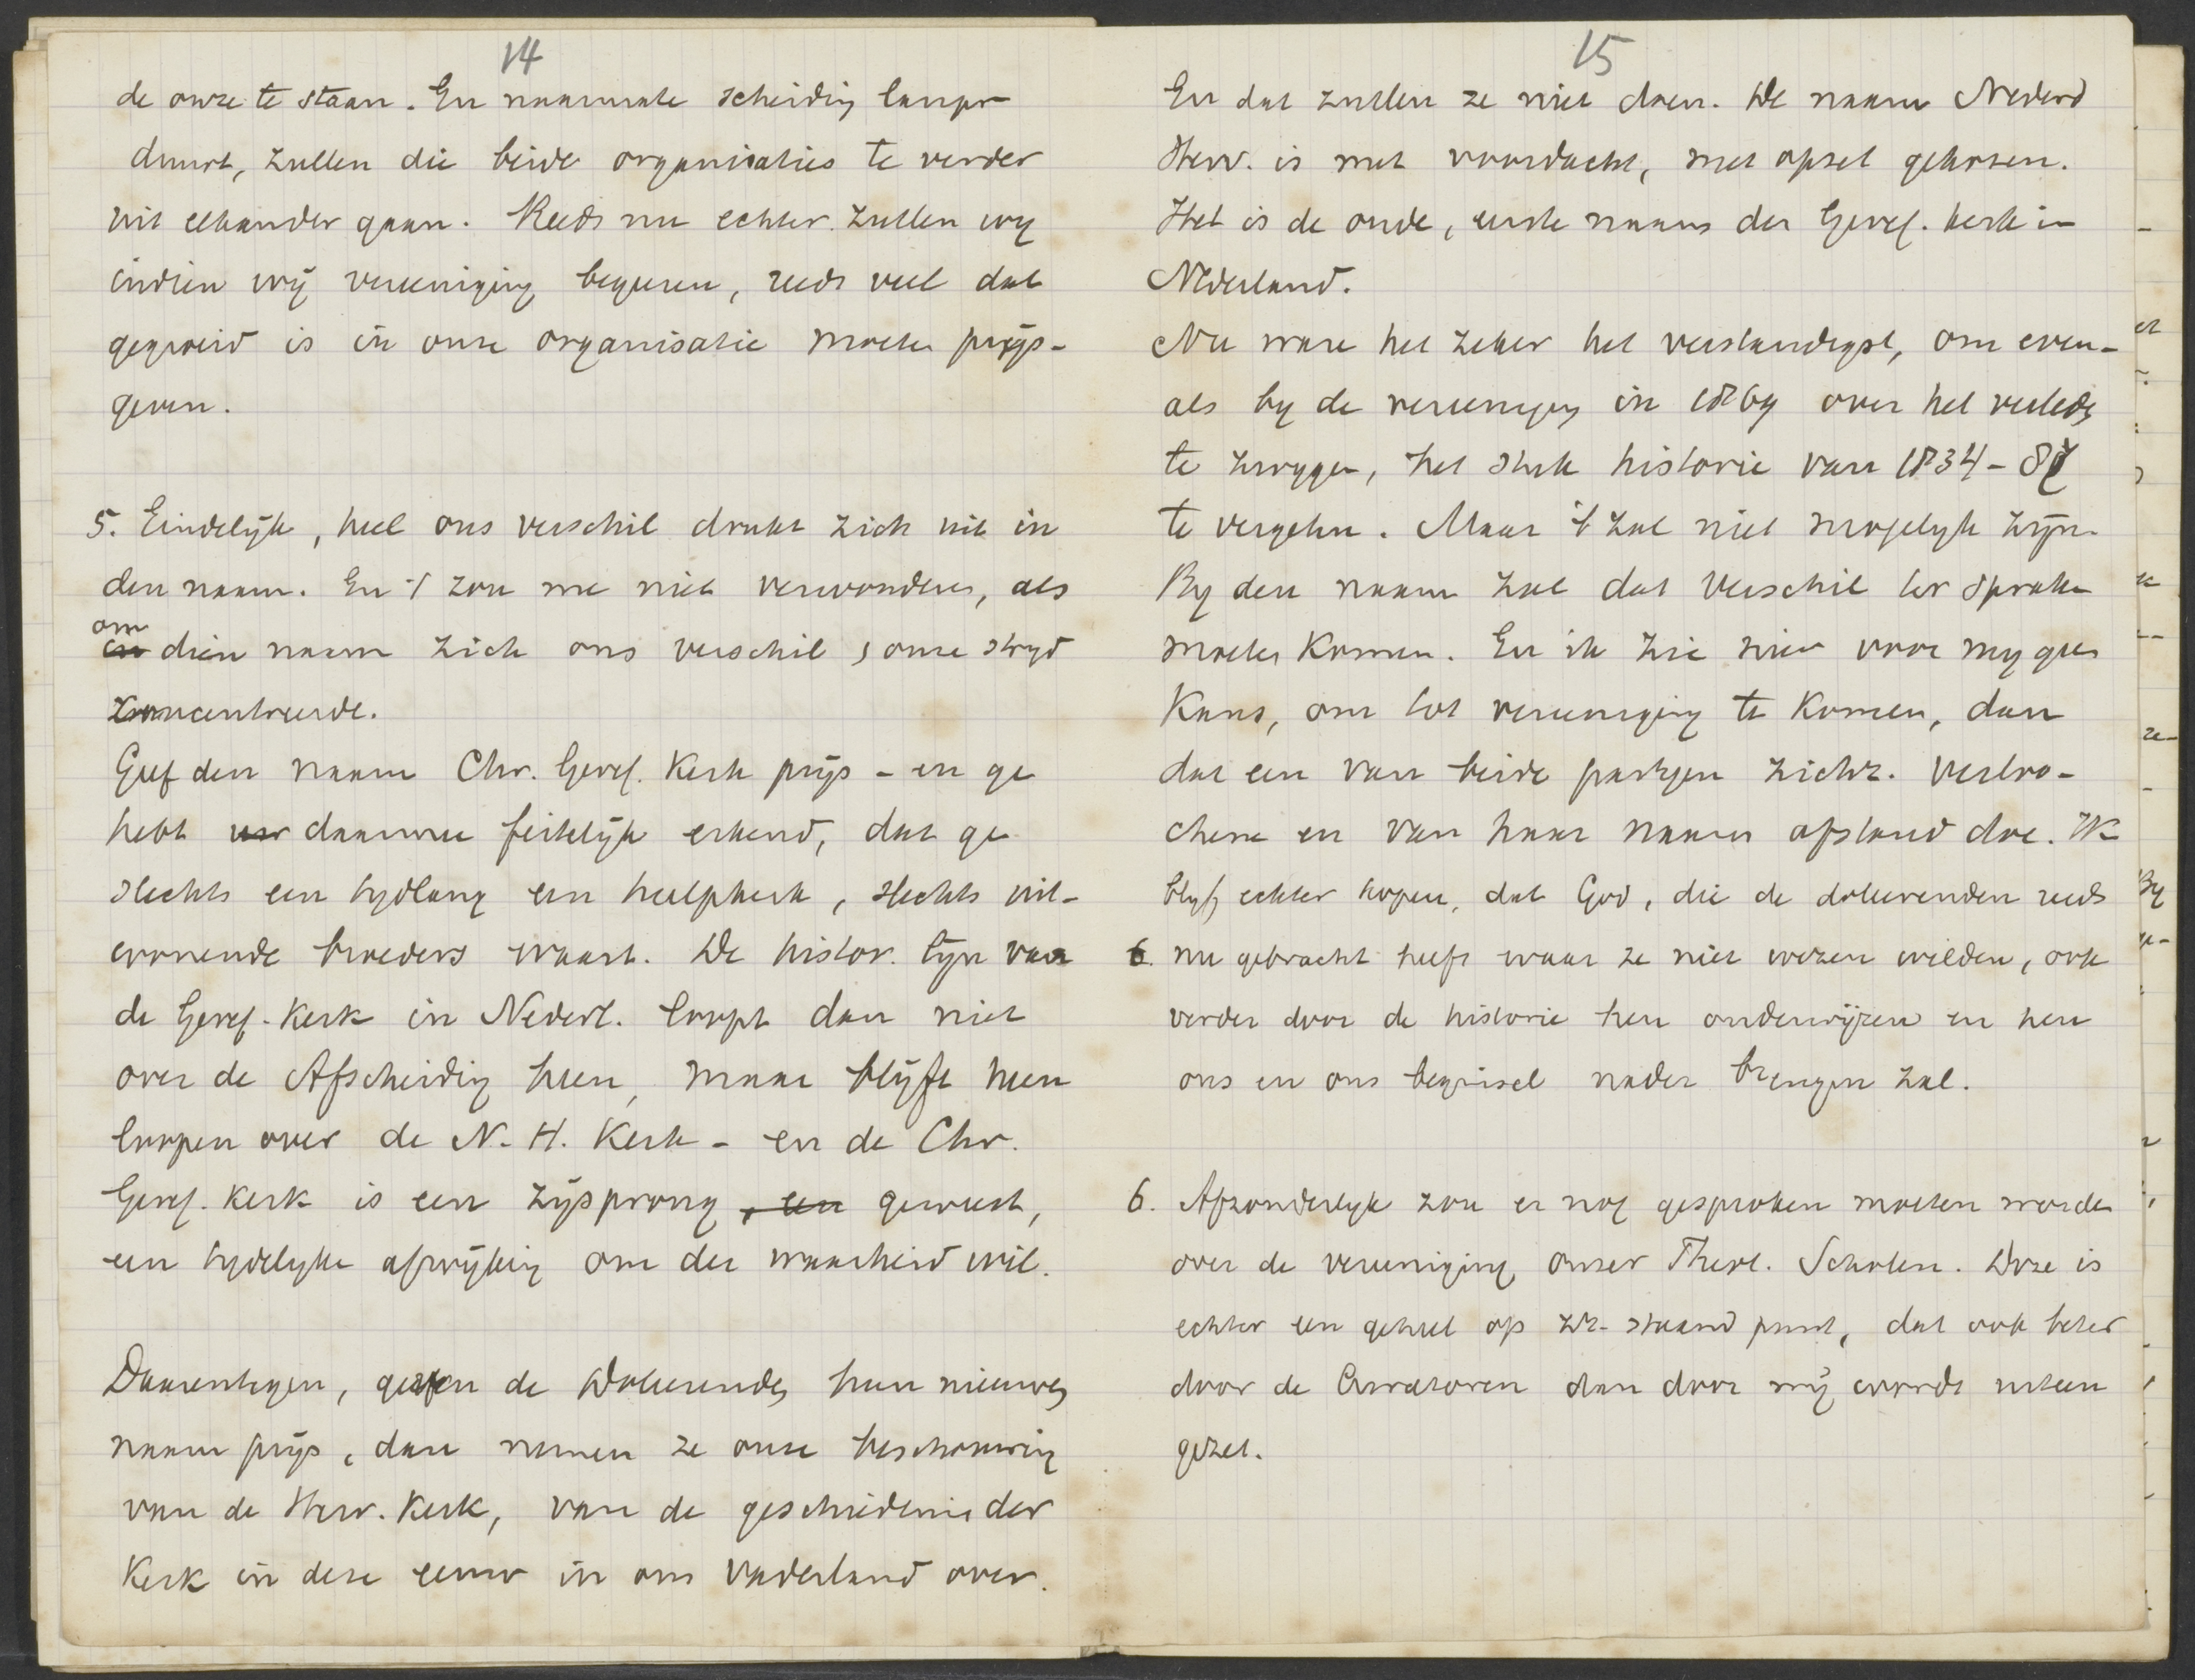 14
de onze te staan. En naarmate scheiding langer
duurt, zullen die beide organisaties te verder
uit elkander gaan. Reeds nu echter zullen wy
indien wij vereeniging begeeren, reeds veel dat
gegroeid is in onze organisatie moeten prijs-
geven.
5. Eindelijk, heel ons verschil drukt zich uit in
den naam. En 't zou me niet verwonderen, als
om
in dien naam zich ons verschil, onze stryd
concentreerde.
Geef den naam Chr. Geref. Kerk prijs - en ge
hebt daarmee feitelijk erkend, dat ge
slechts een tydlang een hulpkerk, slechts uit-
wonende broeders waart. De histor. lijn van
de Geref. Kerk in Nederl. loopt dan niet
over de Afscheiding heen, maar blijft heen
loopen over de N. H. Kerk - en de Chr.
Geref. Kerk is een zijsprong, een geweest,
een tydelyke afwijking om der waarheid wil.
Daarentegen, geven de Doleerenden hun nieuwen
naam prijs, dan nemen ze onze beschouwing
van de Herv. Kerk, van de geschiedenis der
Kerk in deze eeuw in ons Vaderland over.
15
En dat zullen ze niet doen. De naam Nederd
Herv. is met voordacht, met opzet gekozen.
Het is de oude, eerste naam der Geref. kerk in
Nederland.
Nu ware het zeker het verstandigst, om even-
als by de vereeniging in 1869 over het verleden
te zwygen, het stuk historie van 1834-87
te vergeten. Maar 't zal niet mogelyk zijn.
By den naam zal dat verschil ter sprake
moeten komen. En ik zie hier voor my geen
Kans, om tot vereeniging te komen, dan
dat een van beide partyen zichz. verloo-
chene en van haar naam afstand doe. Ik
blyf echter hopen, dat God, die de doleerenden reeds
6. nu gebracht heeft waar ze niet wezen wilden, ook
verder door de historie hen onderwijzen en hen
ons en ons beginsel nader brengen zal.
6. Afzonderlyk zou er nog gesproken moeten worden
over de vereeniging onzer Theol. Scholen. Deze is
echter een geheel op zz. staand punt, dat ook beter
door de Curatoren dan door mij wordt uiteen
gezet.